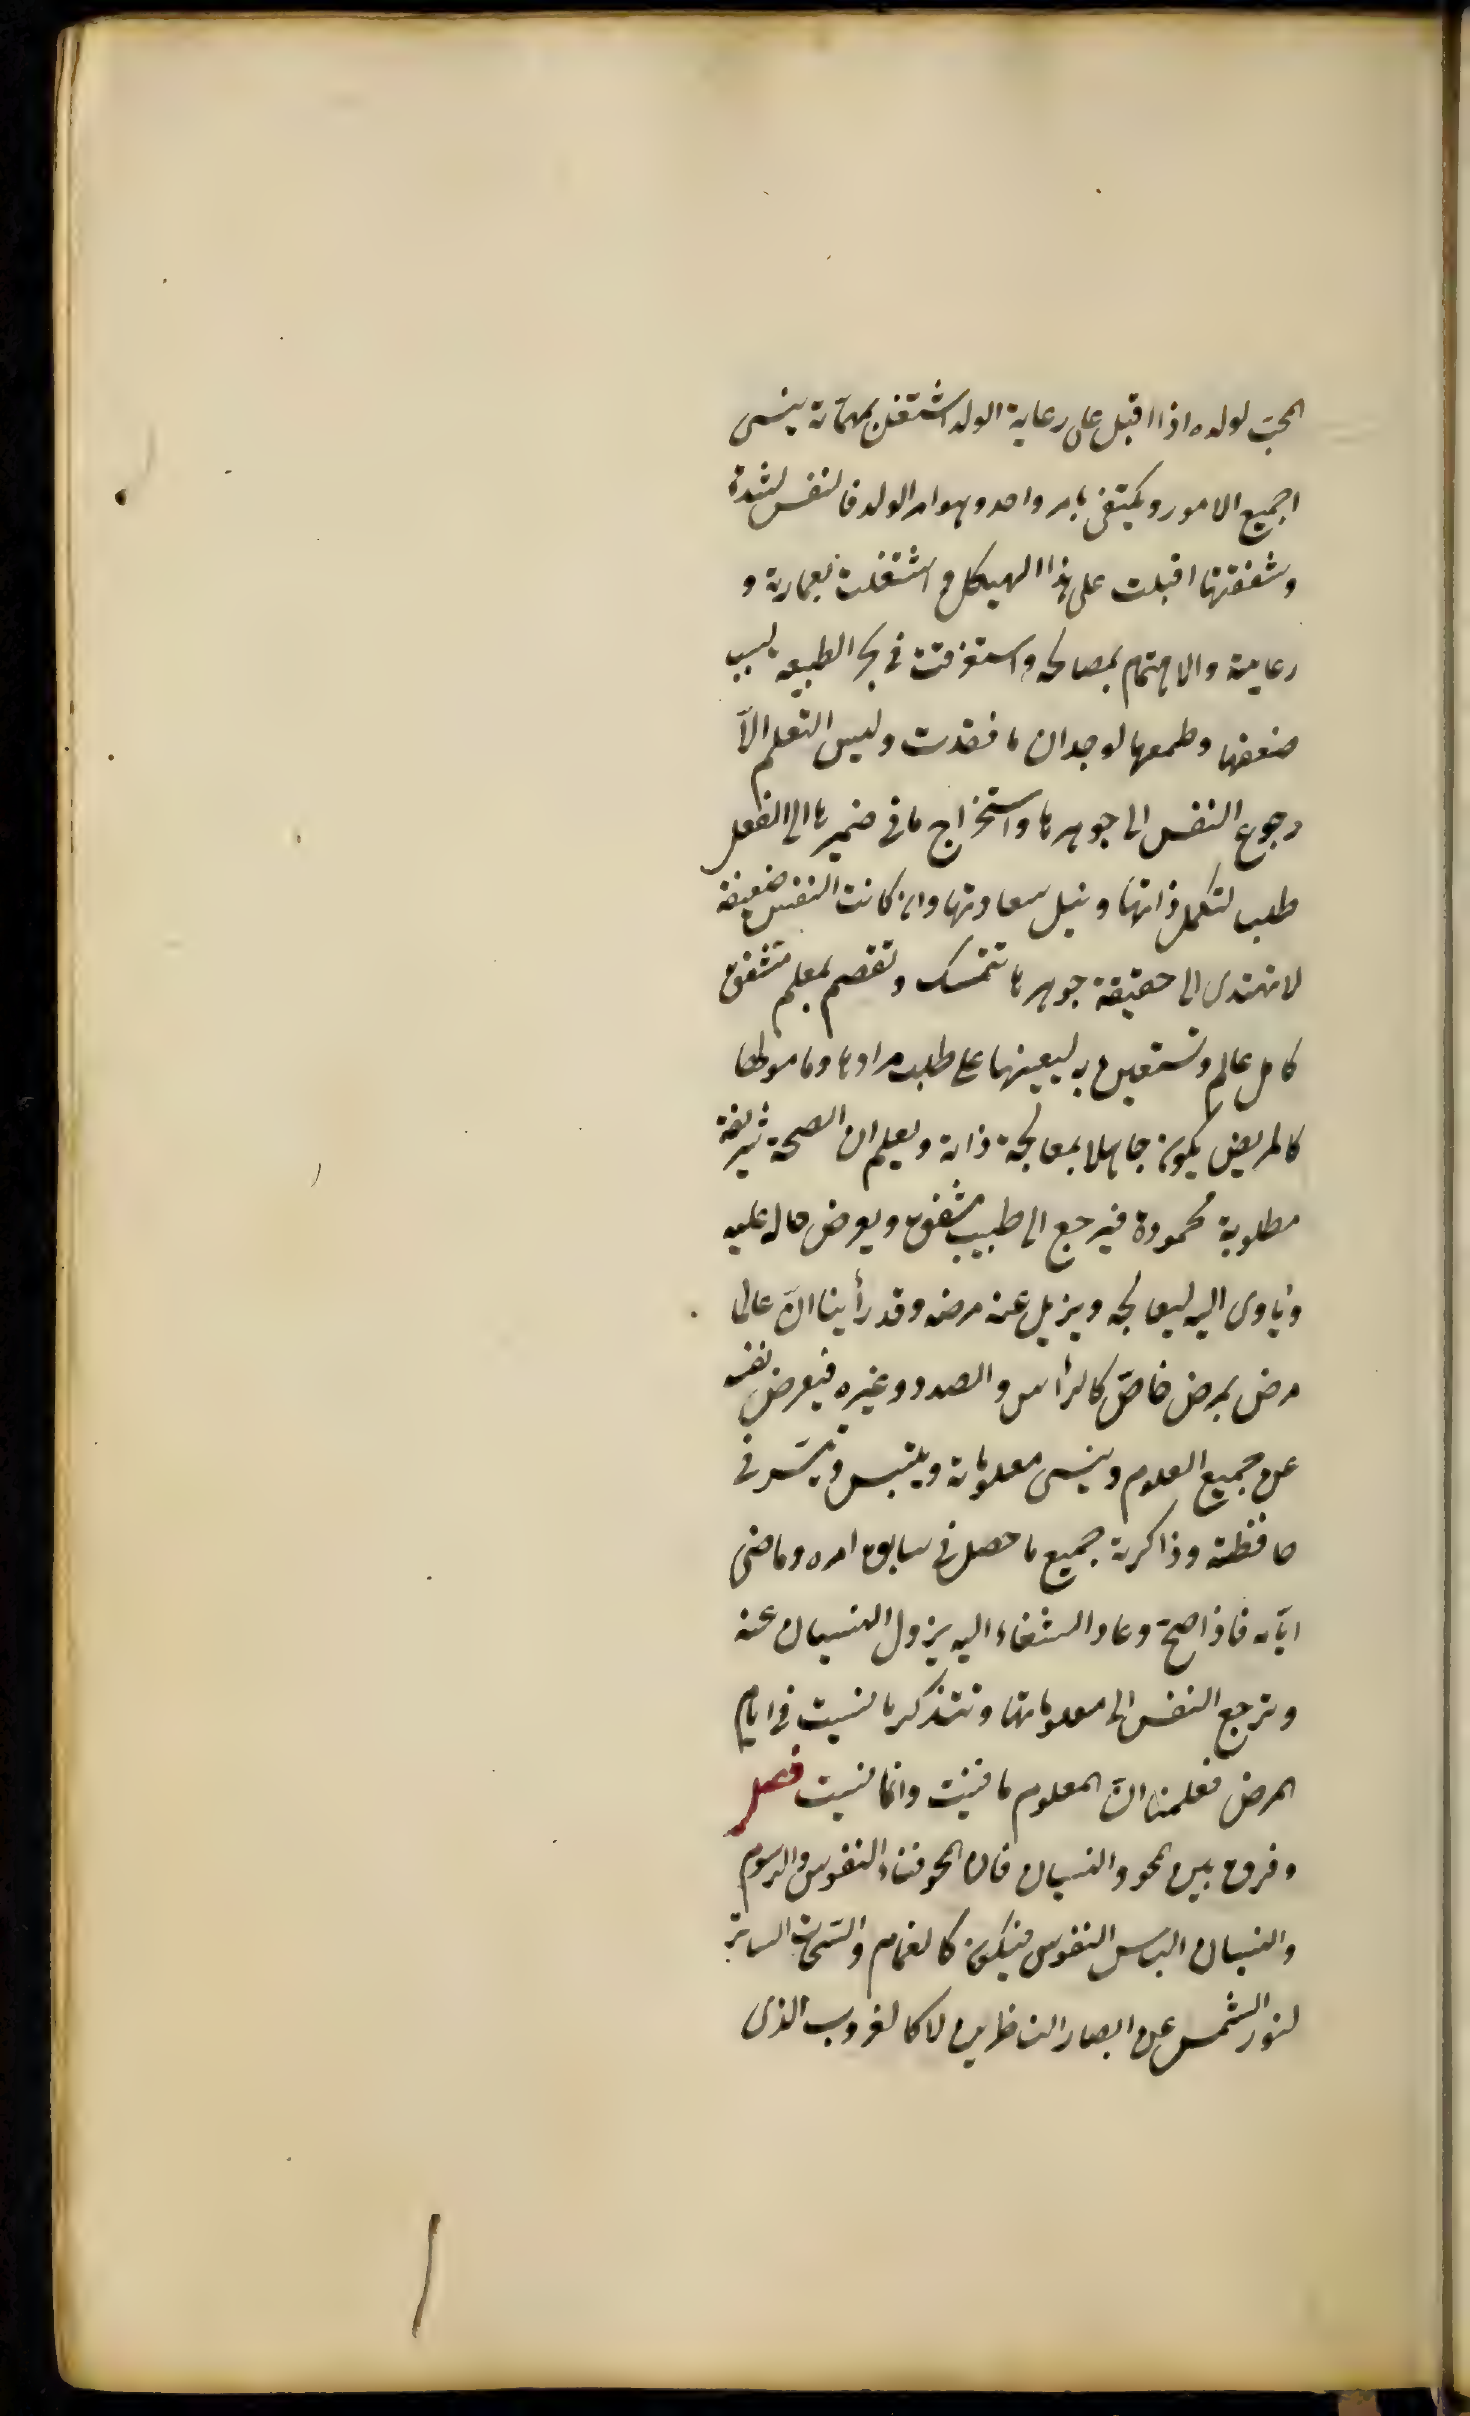 المحبّ لولده اذا اقبل على رعاية الولد اشتغل بمهمّاته ينسى
جميع الامور ويكتفى بامر واحد وهو امر الولد فالنفس لشدة
وشفقتها اقبلت على هذا الهيكل واشتغلت بعمارته و
رعايته والاهتمام بمصالحه واستغرقت فى بحر الطبيعه بسبب
ضعفها وطمعها لوجدان ما فقدت وليس التعلم الّا
رجوع النفس الى جوهرها واستخراج ما فى ضميرها الى الفعل
طلب لتكمل ذاتها ونيل سعادتها وان كانت النفس ضعيفة
لا تهتدى الى حقيقة جوهرها تتمسك وتعتصم بمعلم مشفق
كامل عالم وتستعين به ليعينها على طلب مرادها ومامولها
كالمريض يكون جاهلا بمعالجة ذاته ويعلم ان الصحة شريفة
مطلوبة محمودة فيرجع الى طبيب مشفق ويعرض حاله عليه
وياوى اليه ليعالجه ويزيل عنه مرضه وقد رأينا انّ عالما
مرض بمرض خاصّ كالراس والصدر وغيره فيعرض نفسه
عن جميع العلوم وينسى معلوماته ويلتبس ويستر فى
حافظته وذاكرته جميع ما حصل فى سابق امره وماضى
ايّامه فاذا صحّ وعاد الشفاء اليه يزول النسيان عنه
وترجع النفس الى معلوماتها وتتذكر ما نسيت فى ايام
المرض فعلمنا انّ المعلوم ما فنيت وانما نسيت فصل
وفرق بين المحو والنسيان فان المحو فناء النقوش والرسوم
والنسيان التباس النقوش فيكون كالغمام والسّحاب الساتر
لنور الشمس عن ابصار الناظرين لا كالغروب الذى